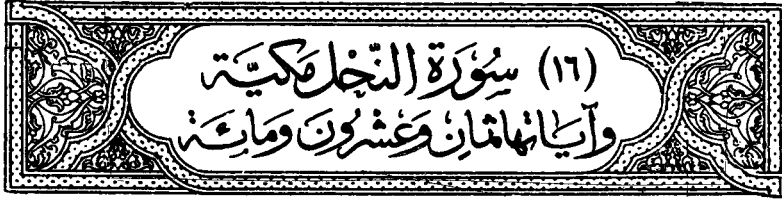 (١٦) سُورَة النَّحْل مَكيَّة
وَآيَاتهَا ثمَانِ وَعَشرُونَ وَمَائَة